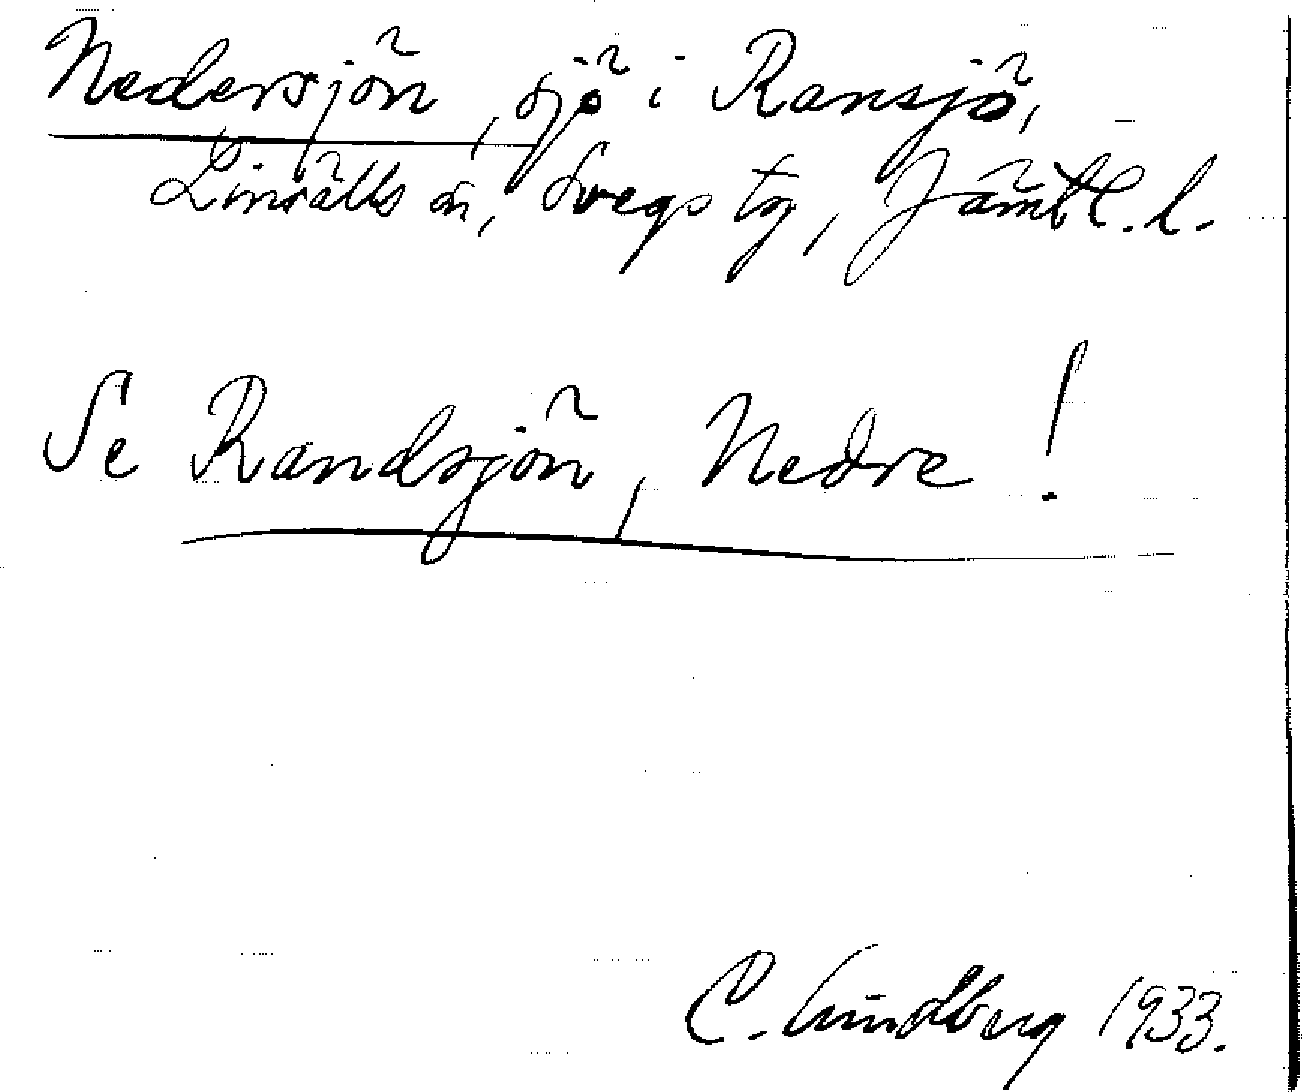 Nedersjön, sjö i Ransjö,
Linsälls sn, Svegs tg, Jämtl. l.
Se Randsjön, Nedre!
C. Lindberg 1933.